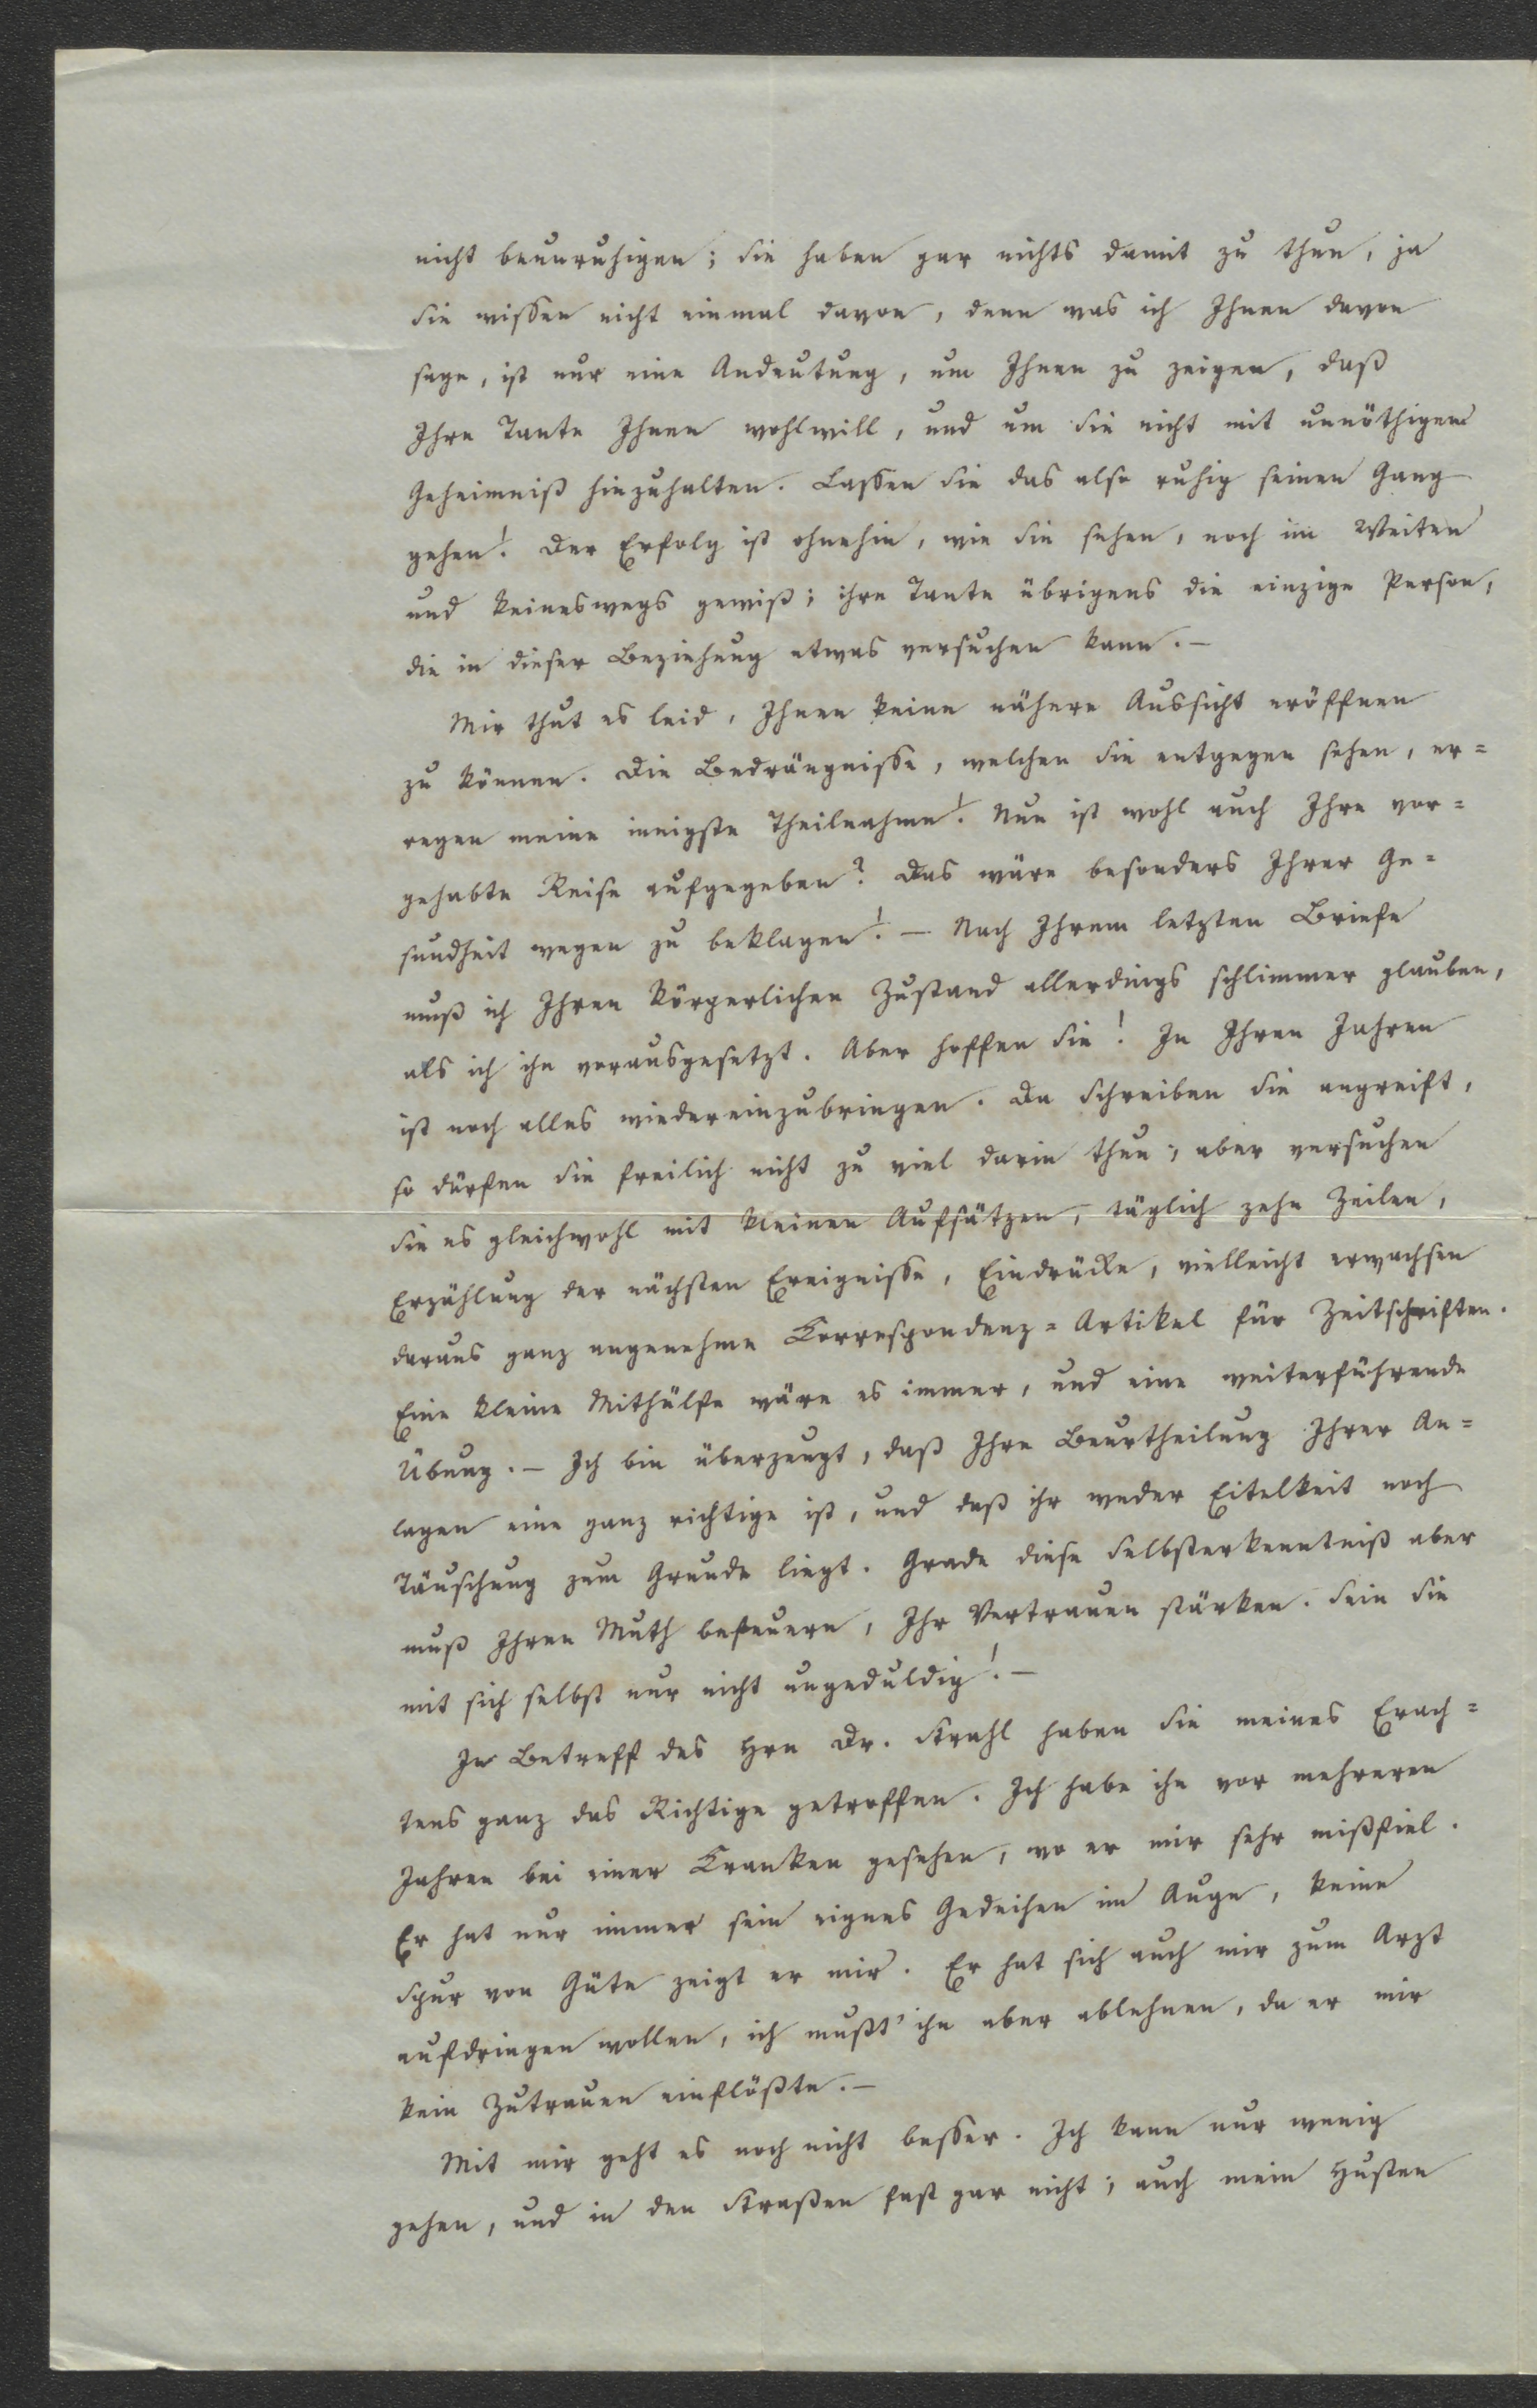 nicht beunruhigen; Sie haben gar nichts damit zu thun, ja
Sie wissen nicht einmal davon, denn was ich Ihnen davon
sage, ist nur eine Andeutung, um Ihnen zu zeigen, daß
Ihre Tante Ihnen wohlwill, und um Sie nicht mit unnöthigem
Geheimniß hinzuhalten. Lassen Sie das also ruhig seinen Gang
gehen! Der Erfolg ist ohnehin, wie Sie sehen, noch im Weiten
und keineswegs gewiß; ihre Tante übrigens die einzige Person,
die in dieser Beziehung etwas versuchen kann. –
Mir thut es leid, Ihnen keine nähere Aussicht eröffnen
zu können. Die Bedrängnisse, welchen Sie entgegen sehen, er=
regen meine innigste Theilnahme! Nun ist wohl auch Ihre vor=
gehabte Reise aufgegeben? Das wäre besonders Ihrer Ge=
sundheit wegen zu beklagen! – Nach Ihrem letzten Briefe
muß ich Ihren körperlichen Zustand allerdings schlimmer glauben,
als ich ihn vorausgesetzt. Aber hoffen Sie! In Ihren Jahren
ist noch alles wiedereinzubringen. Da Schreiben Sie angreift,
so dürfen Sie freilich nicht zu viel darin thun; aber versuchen
Sie es gleichwohl mit kleinen Aufsätzen, täglich zehn Zeilen,
Erzählung der nächsten Ereignisse, Eindrücke, vielleicht erwachsen
daraus ganz angenehme Correspondenz=Artikel für Zeitschriften.
Eine kleine Mithülfe wäre es immer, und eine weiterführende
Übung. – Ich bin überzeugt, daß Ihre Beurtheilung Ihrer An=
lagen eine ganz richtige ist, und daß ihr weder Eitelkeit noch
Täuschung zum Grunde liegt. Grade diese Selbsterkenntniß aber
muß Ihren Muth befeuern, Ihr Vertrauen stärken. Sein Sie
mit sich selbst nur nicht ungeduldig! –
In Betreff des Hrn Dr. Strahl haben Sie meines Erach=
tens ganz das Richtige getroffen. Ich habe ihn vor mehreren
Jahren bei einer Kranken gesehen, wo er mir sehr mißfiel.
Er hat nur immer sein eignes Gedeihen im Auge, keine
Spur von Güte zeigt er mir. Er hat sich auch mir zum Arzt
aufdringen wollen, ich mußt' ihn aber ablehnen, da er mir
kein Zutrauen einflößte. –
Mit mir geht es noch nicht besser. Ich kann nur wenig
gehen, und in den Straßen fast gar nicht; auch mein Husten